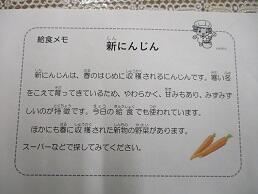 給食メモ
新にんじん
新にんじんは、春のはじめに収穫されるにんじんです。寒い冬
をこえて育ってきているため、やわらかく、甘みもあり、みずみず
しいのが特徴です。今日の給食でも使われています。
ほかにも春に収穫された新物の野菜があります。
スーパーなどで探してみてください。